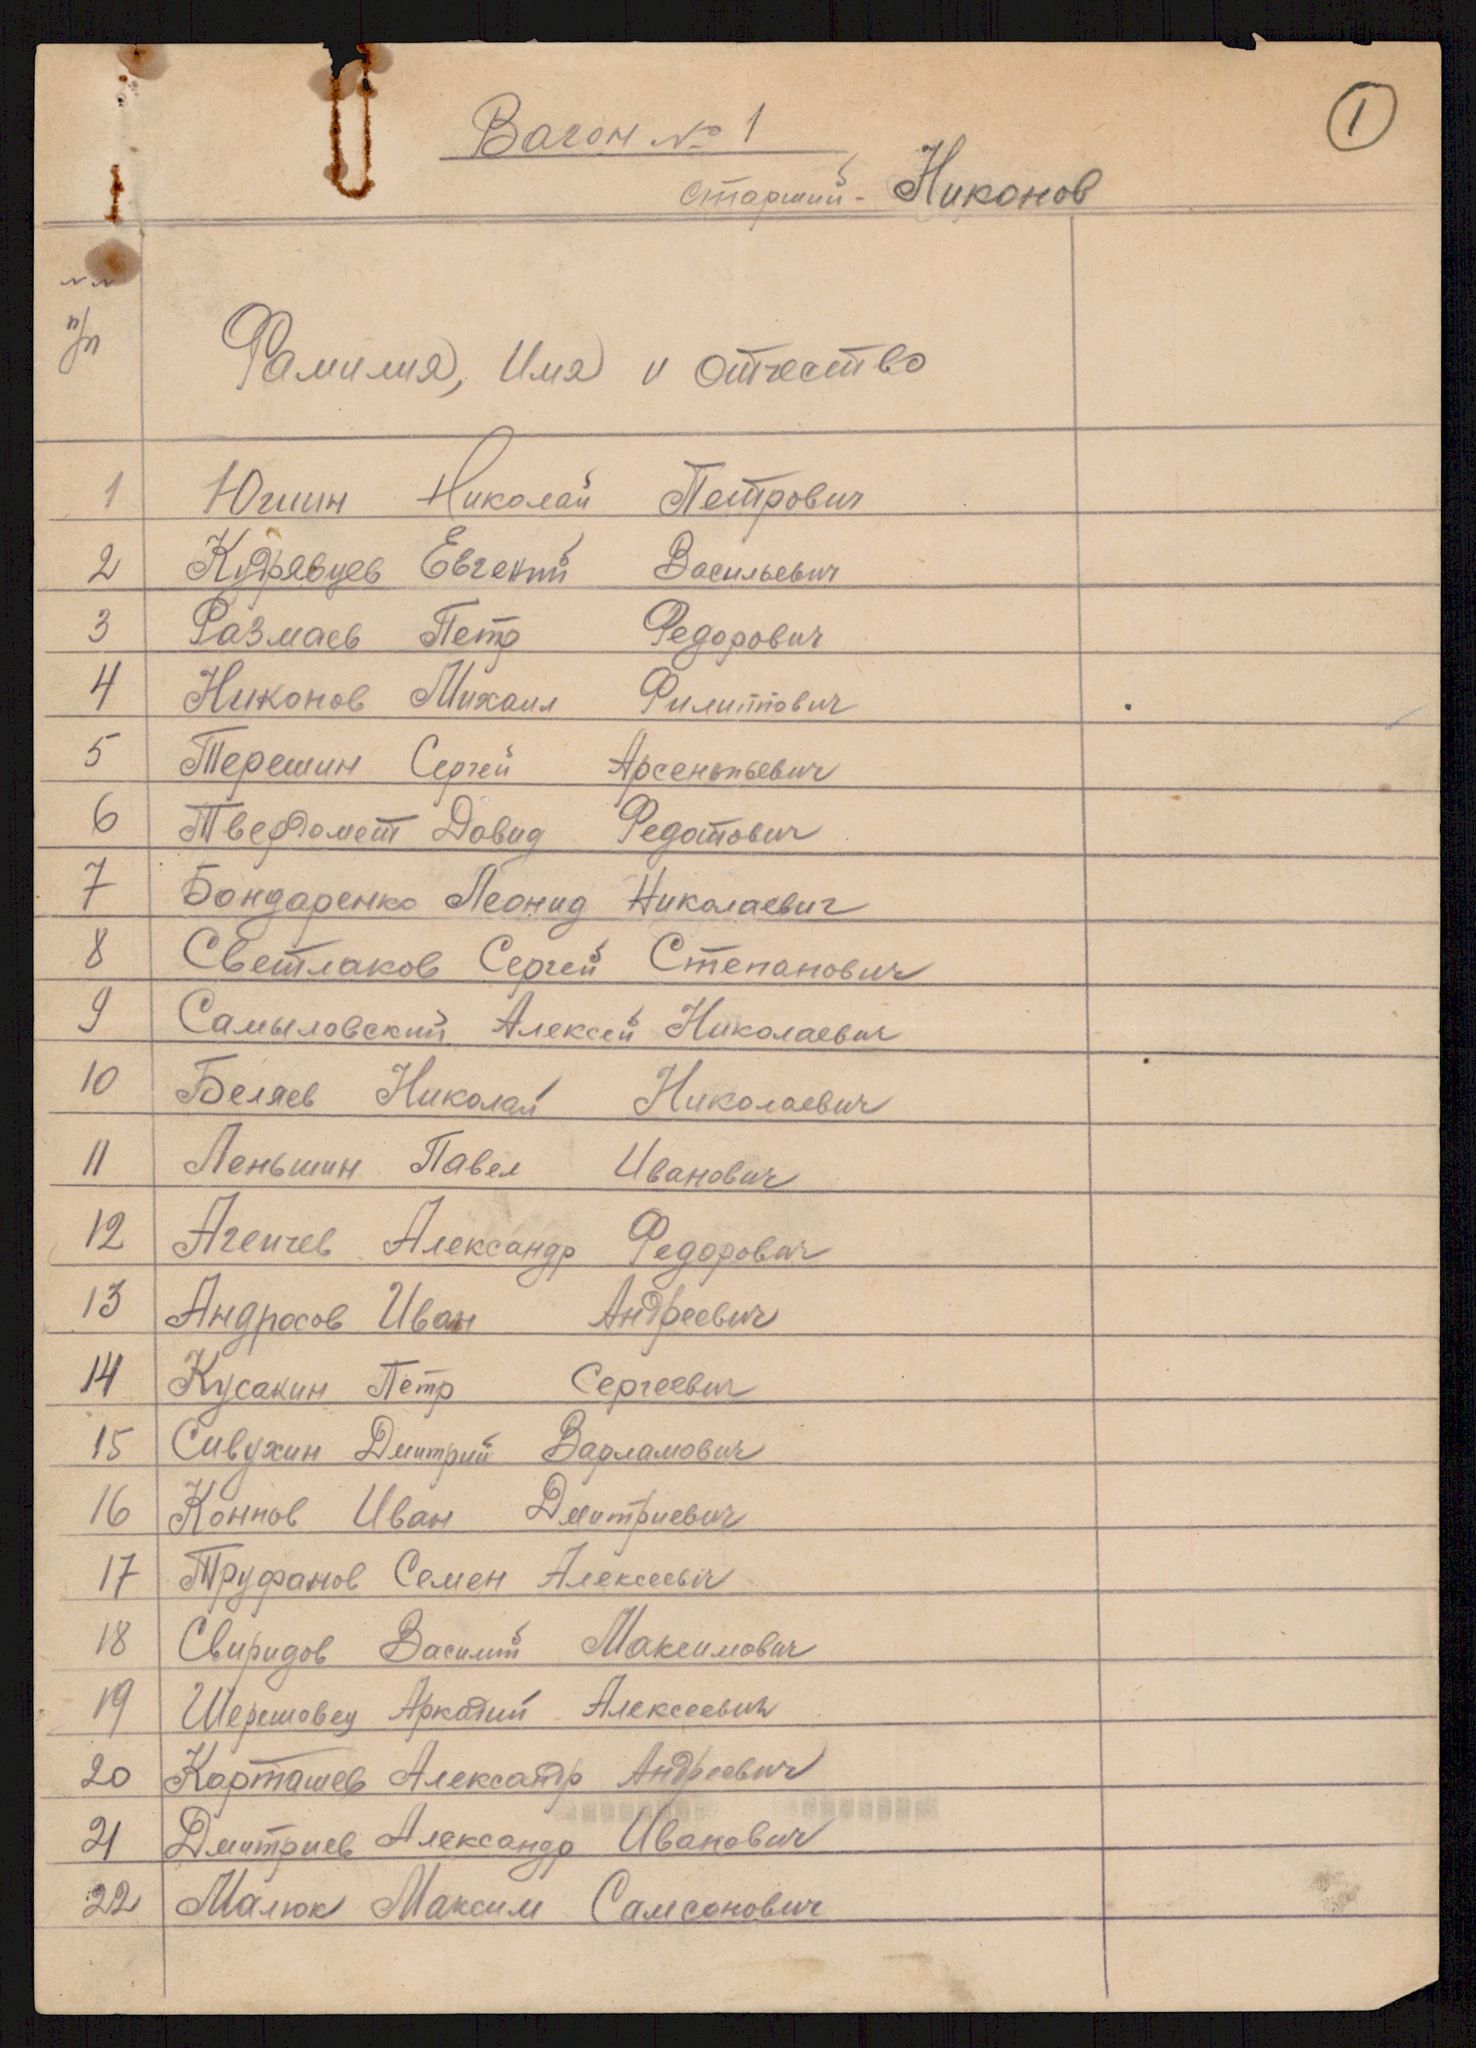 1
Вагон № 1
Старший - Никонов
№№ п/п
Фамилия, Имя и отчество
1 Югшин Николай Петрович
2 Кудрявцев Евгений Васильевич
3 Размаев Петр Федорович
4 Никонов Михаил Филиппович
5 Терешин Сергей Арсентьевич
6 Давид Федотович
7 Бондаренко Леонид Николаевич
8 Светлаков Сергей Степанович
9 Самыловский Алексей Николаевич
10 Беляев Николай Николаевич
11 Леньшин Павел Иванович
12 Агеичев Александр Федорович
13 Андросов Иван Андреевич
14 Кусакин Петр Сергеевич
15 Сивухин Дмитрий Варламович
16 Коннов Иван Дмитриевич
17 Труфанов Семен Алексеевич
18 Свиридов Василий Максимович
19 Шерешовец Аркадий Алексеевич
20 Карташев Александр Андреевич
21 Дмитриев Александр Иванович
22 Малюк Максим Самсонович